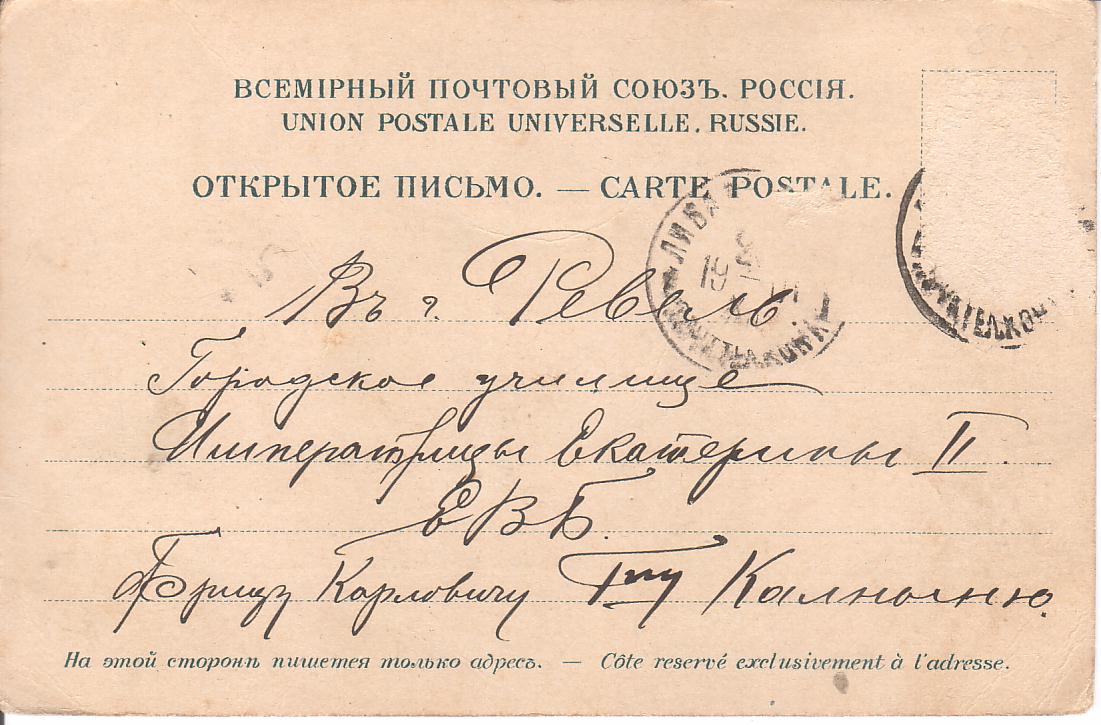 ВСЕМІРНЫЙ ПОЧТОВЫЙ СОЮЗЪ. РОССІЯ.
UNION POSTALE UNIVERSELLE. RUSSIE.
ОТКРЫТОЕ ПИСЬМО. — CARTE POSTALE.
Въ г. Ревель.
Городское училище
Императрицы Екатерины II.
ЕВБ.
Фрицу Карловичу Гну Калныню.
На этой сторонѣ пишется только адресъ. — Côte reservé exclusivement à l'adresse.